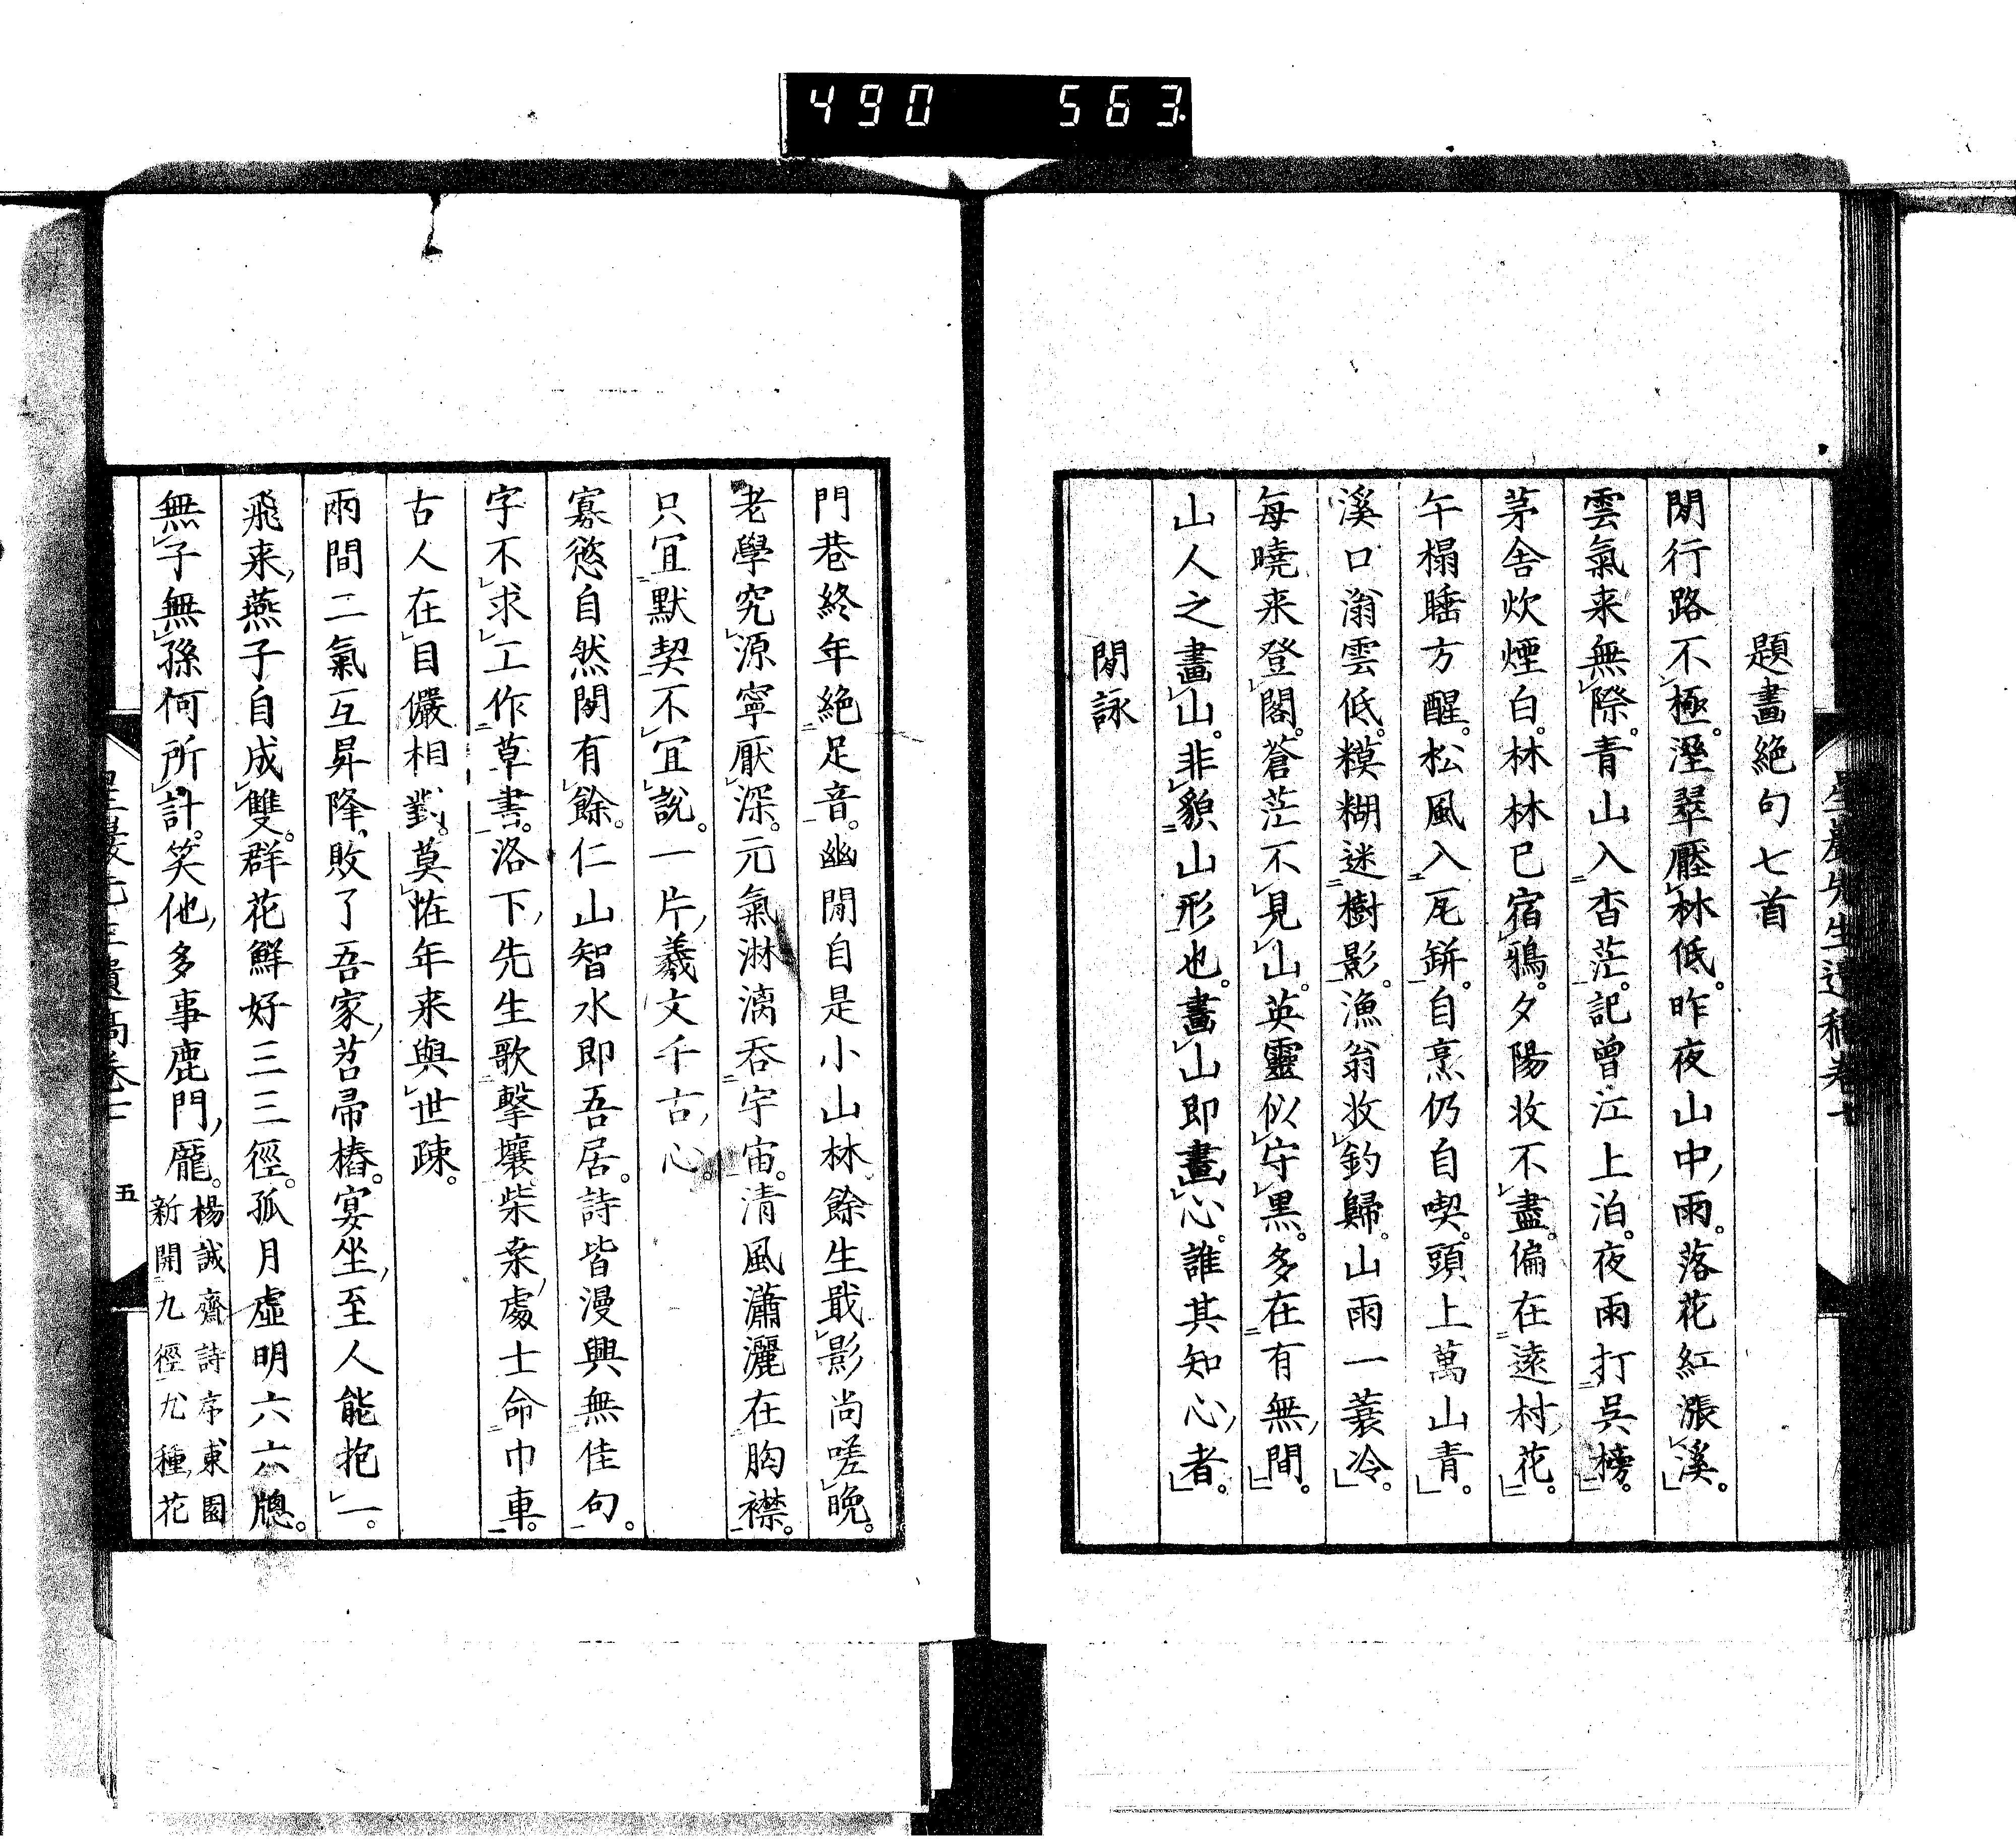 490 563
題畫絕句七首
閒行路不極。溼翠壓林低。昨夜山中雨。落花紅漲溪。
雲氣来無際。青山入杳茫。記曾江上泊。夜雨打吳榜。
茅舍炊煙白。林林已宿鴉。夕陽收不盡。偏在遠村花。
午榻睡方醒。松風入瓦缾。自烹仍自喫。頭上萬山青。
溪口滃雲低。糢糊迷樹影。漁翁收釣歸。山雨一蓑冷。
每曉来登閣。蒼茫不見山。英靈似守黑。多在有無間。
山人之畫山。非貌山形也。畫山即畫心。誰其知心者。
閒詠
門巷終年絕足音。幽閒自是小山林。餘生戢影尚嗟晚。
老學究源寧厭深。元氣淋漓吞宇宙。清風瀟灑在胸襟。
只宜默契不宜說。一片羲文千古心。
寡慾自然閒有餘。仁山智水即吾居。詩皆漫興無佳句。
字不求工作草書。洛下先生歌擊壤。柴桒處士命巾車。
古人在目儼相對。莫恠年来與世疎。
兩間二氣互昇降。敗了吾家苕帚樁。宴坐至人能抱一。
飛来燕子自成雙。群花鮮好三三徑。孤月虛明六六牕。
無子無孫何所計。笑他多事鹿門龐。楊誠齋詩序東園
新開九徑九種花
五